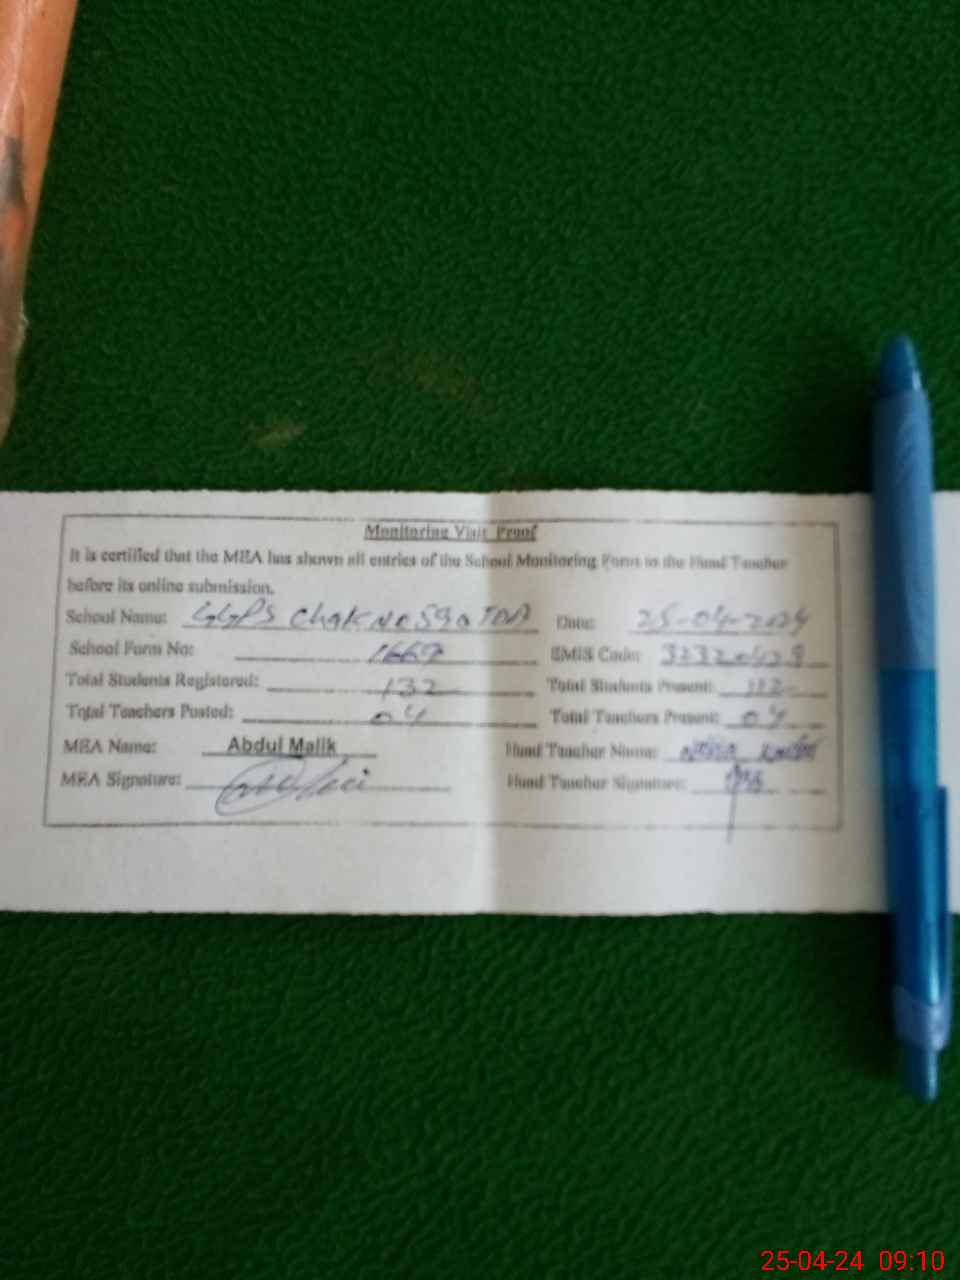 Monitoring Visit Proof
It is certified that the MEA has shown all entries of the School Monitoring Form to the Head Teacher
before its online submission.
School Name: GGPS Chak No 590 TDA Date: 25-04-2024
School Form No: 1669 EMIS Code:
Total Students Registered: 132 Total Students Present: 112
Total Teachers Posted: 04 Total Teachers Present: 04
MEA Name: Abdul Malik Head Teacher Name:
MEA Signature: Head Teacher Signature:
25-04-24 09:10